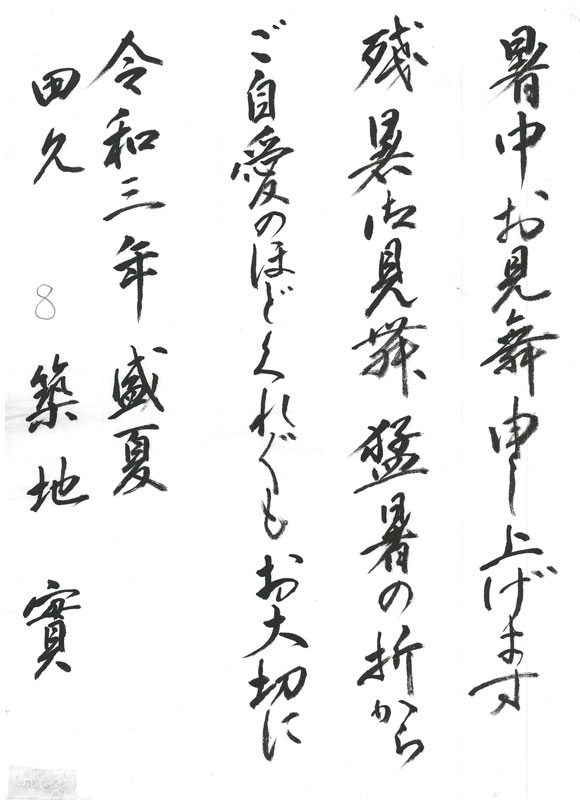 暑中お見舞申し上げます
残暑御見舞 猛暑の折から
ご自愛のほどくれ〲もお大切に
令和三年 盛夏
田久 8 築地 實